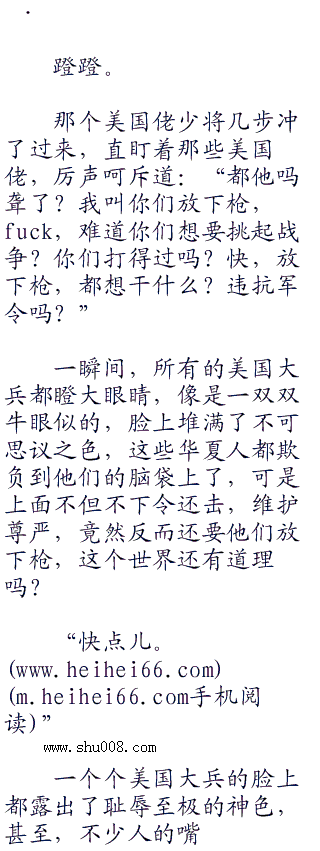 .
蹬蹬。
那个美国佬少将几步冲
了过来，直盯着那些美国
佬，厉声呵斥道：“都他吗
聋了？我叫你们放下枪，
fuck，难道你们想要挑起战
争？你们打得过吗？快，放
下枪，都想干什么？违抗军
令吗？”
一瞬间，所有的美国大
兵都瞪大眼睛，像是一双双
牛眼似的，脸上堆满了不可
思议之色，这些华夏人都欺
负到他们的脑袋上了，可是
上面不但不下令还击，维护
尊严，竟然反而还要他们放
下枪，这个世界还有道理
吗？
“快点儿。
(www.heihei66.com)
(m.heihei66.com手机阅
读)”
www.shu008.com
一个个美国大兵的脸上
都露出了耻辱至极的神色，
甚至，不少人的嘴